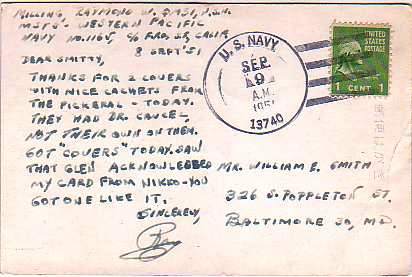 MILLING, RAYMOND W. QM3/, U.S.N.
MSTS - WESTERN PACIFIC
NAVY NO. 1165, c/o F.P.O., S.F., CALIF
8 SEPT 51
DEAR SMITTY,
THANKS FOR 2 COVERS
WITH NICE CACHETS FROM
THE PICKERAL - TODAY.
THEY HAD BR. CANCEL,
NOT THEIR OWN ON THEM.
GOT "COVERS" TODAY. SAW
THAT GLEN ACKNOWLEDGED
MY CARD FROM NIKKO - YOU
GOT ONE LIKE IT.
SINCERELY,
Ray
U. S. NAVY
SEP
9
A.M.
1951
13740
UNITED STATES
POSTAGE
1 CENT 1
MR. WILLIAM E. SMITH
326 S. POPPLETON ST.
BALTIMORE 30, MD.